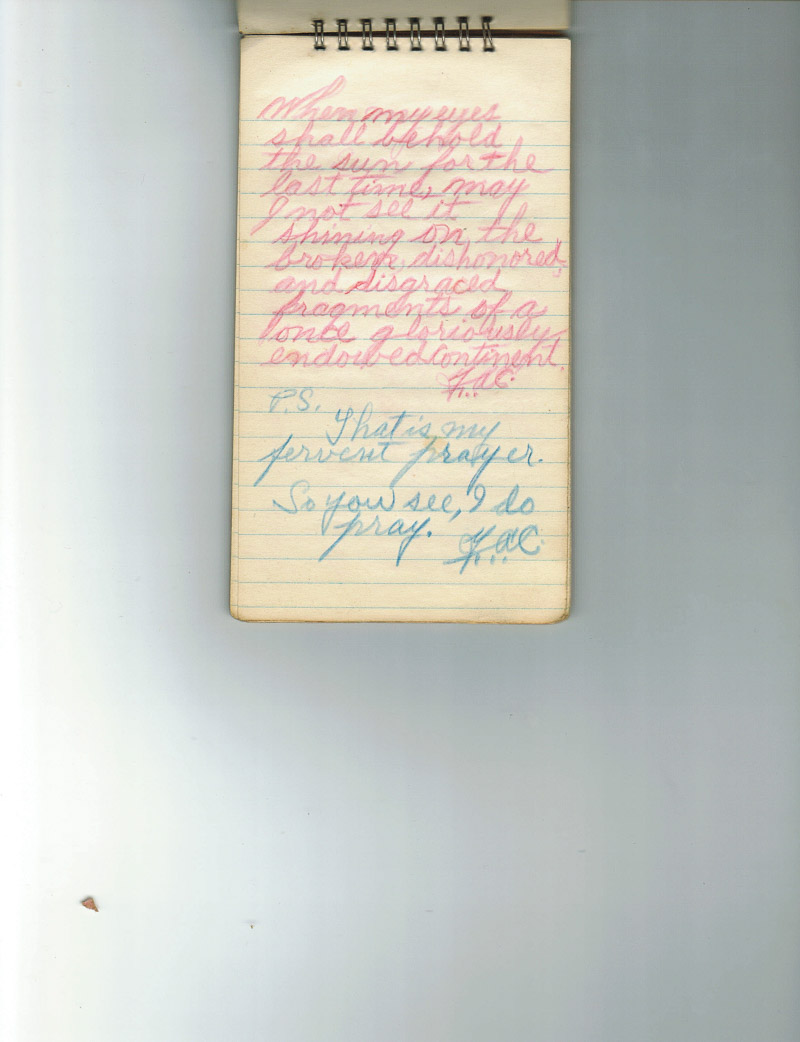 When my eyes
shall behold
the sun for the
last time, may
I not see it
shining on the
broken, dishonored,
and disgraced
fragments of a
once gloriously
endowed continent.
F.a.C.
P.S.
That is my
fervent prayer.
So you see, I do
pray.
F.a.C.